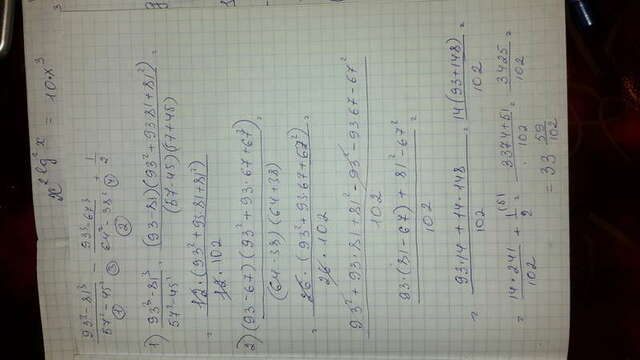 x^(2 lg² x) = 10·x³
(93³-81³)/(57²-45²) - (93³-67³)/(64²-38²) + 1/2
① ③ ② ④
1) (93³-81³)/(57²-45²) = (93-81)(93²+93·81+81²)/(57-45)(57+45) =
= 12·(93²+93·81+81²)/12·102
2) (93-67)(93²+93·67+67²)/(64-38)(64+38) =
= 26·(93²+93·67+67²)/26·102
93²+93·81+81²-93²-93·67-67²/102
93·(81-67)+81²-67²/102
= 93·14+14·148/102 = 14(93+148)/102 =
= 14·241/102 + 1/2 (51 = 3374+51/102 = 3425/102
= 33 59/102